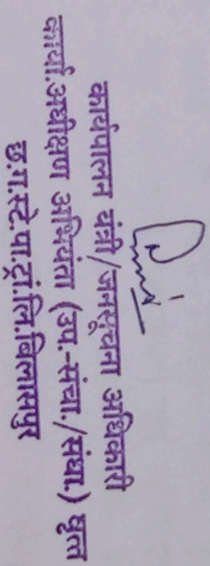 कार्यपालन यंत्री/जनसूचना अधिकारी
कार्या.अधीक्षण अभियंता (उप.-संचा./संधा.) वृत्त
छ.ग.स्टे.पा.ट्रां.लि.बिलासपुर